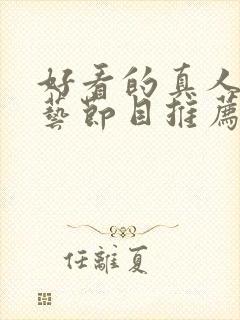 好看的真人
藝節目推薦
任離夏